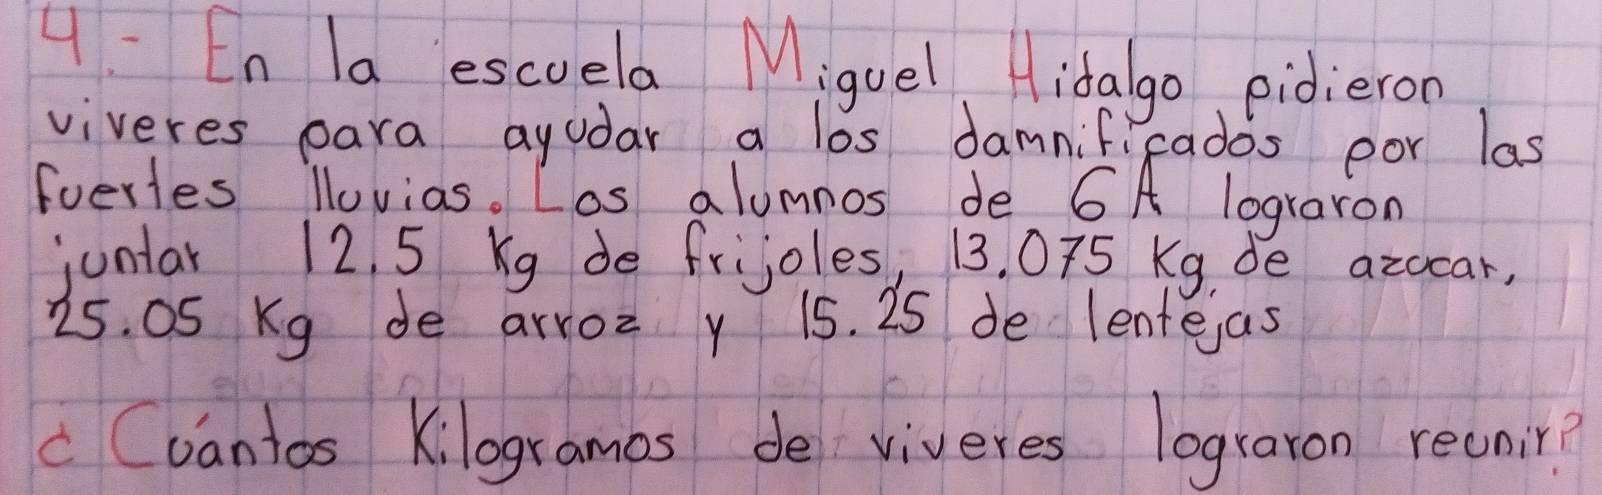 4.- En la escuela Miguel Hidalgo pidieron
viveres para ayudar a los damnificados por las
fuertes lluvias. Los alumnos de 6A lograron
juntar 12.5 Kg de frijoles, 13.075 Kg. de azucar,
25.05 Kg de arroz y 15.25 de lentejas
¿Cuántos Kilogramos de viveres lograron reunir?